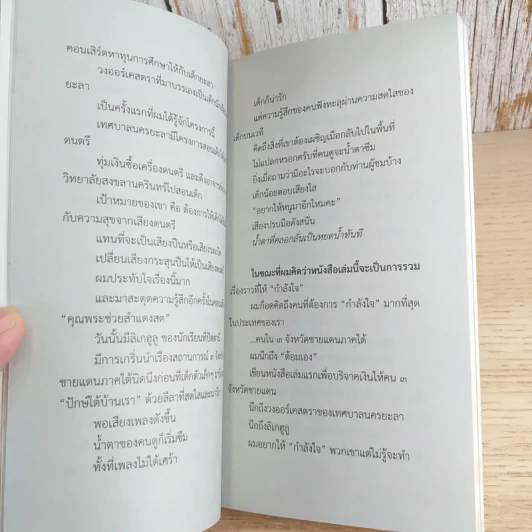 คอนเสิร์ตหาทุนการศึกษาให้กับเด็กยะลา
วงออร์เคสตราที่มาบรรเลงเป็นเด็ก
ยะลา
เป็นครั้งแรกที่ผมได้รู้จักโครงการนี้
เทศบาลนครยะลามีโครงการสอนเด็ก
ดนตรี
ทุ่มเงินซื้อเครื่องดนตรี และดึงอาจารย์
วิทยาลัยสงขลานครินทร์ไปสอนเด็ก
เป้าหมายของเขา คือ ต้องการให้เด็ก
กับความสุขจากเสียงดนตรี
แทนที่จะเป็นเสียงปืนหรือเสียงระเบิด
เปลี่ยนเสียงกระสุนปืนให้เป็นเสียง
ผมประทับใจเรื่องนี้มาก
และมาสะดุดความรู้สึกอีกครั้งใน
“คุณพระช่วยสำแดงสด”
วันนั้นมีลิเกฮูลู ของนักเรียน
มีการเกริ่นนำเรื่องสถานการณ์ ๓
ชายแดนภาคใต้นิดนึงก่อนที่เด็กตัวเล็กๆ
“ปักษ์ใต้บ้านเรา” ด้วยลีลาที่สดใสและน่ารัก
พอเสียงเพลงดังขึ้น
น้ำตาของคนดูก็เริ่มซึม
ทั้งที่เพลงไม่ได้เศร้า
เด็กก็น่ารัก
แต่ความรู้สึกของคนฟังทะลุผ่านความสดใสของ
เด็กบนเวที
คิดถึงสิ่งที่เขาต้องเผชิญเมื่อกลับไปในพื้นที่
ไม่แปลกหรอกครับที่คนดูจะน้ำตาซึม
ยิ่งเมื่อถามว่ามีอะไรจะบอกกับท่านผู้ชมบ้าง
เด็กน้อยตอบเสียงใส
“อยากให้หนูมาอีกไหมคะ”
เสียงปรบมือดังสนั่น
น้ำตาที่คลอกลั่นเป็นหยดน้ำทันที
ในขณะที่ผมคิดว่าหนังสือเล่มนี้จะเป็นการรวม
เรื่องราวที่ให้ “กำลังใจ”
ผมก็อดคิดถึงคนที่ต้องการ “กำลังใจ” มากที่สุด
ในประเทศของเรา
...คนใน ๓ จังหวัดชายแดนภาคใต้
ผมนึกถึง “ต้อมอง”
เขียนหนังสือเล่มแรกเพื่อบริจาคเงินให้คน ๓
จังหวัดชายแดน
นึกถึงวงออร์เคสตราของเทศบาลนครยะลา
นึกถึงลิเกฮูลู
ผมอยากให้ “กำลังใจ” พวกเขาแต่ไม่รู้จะทำ